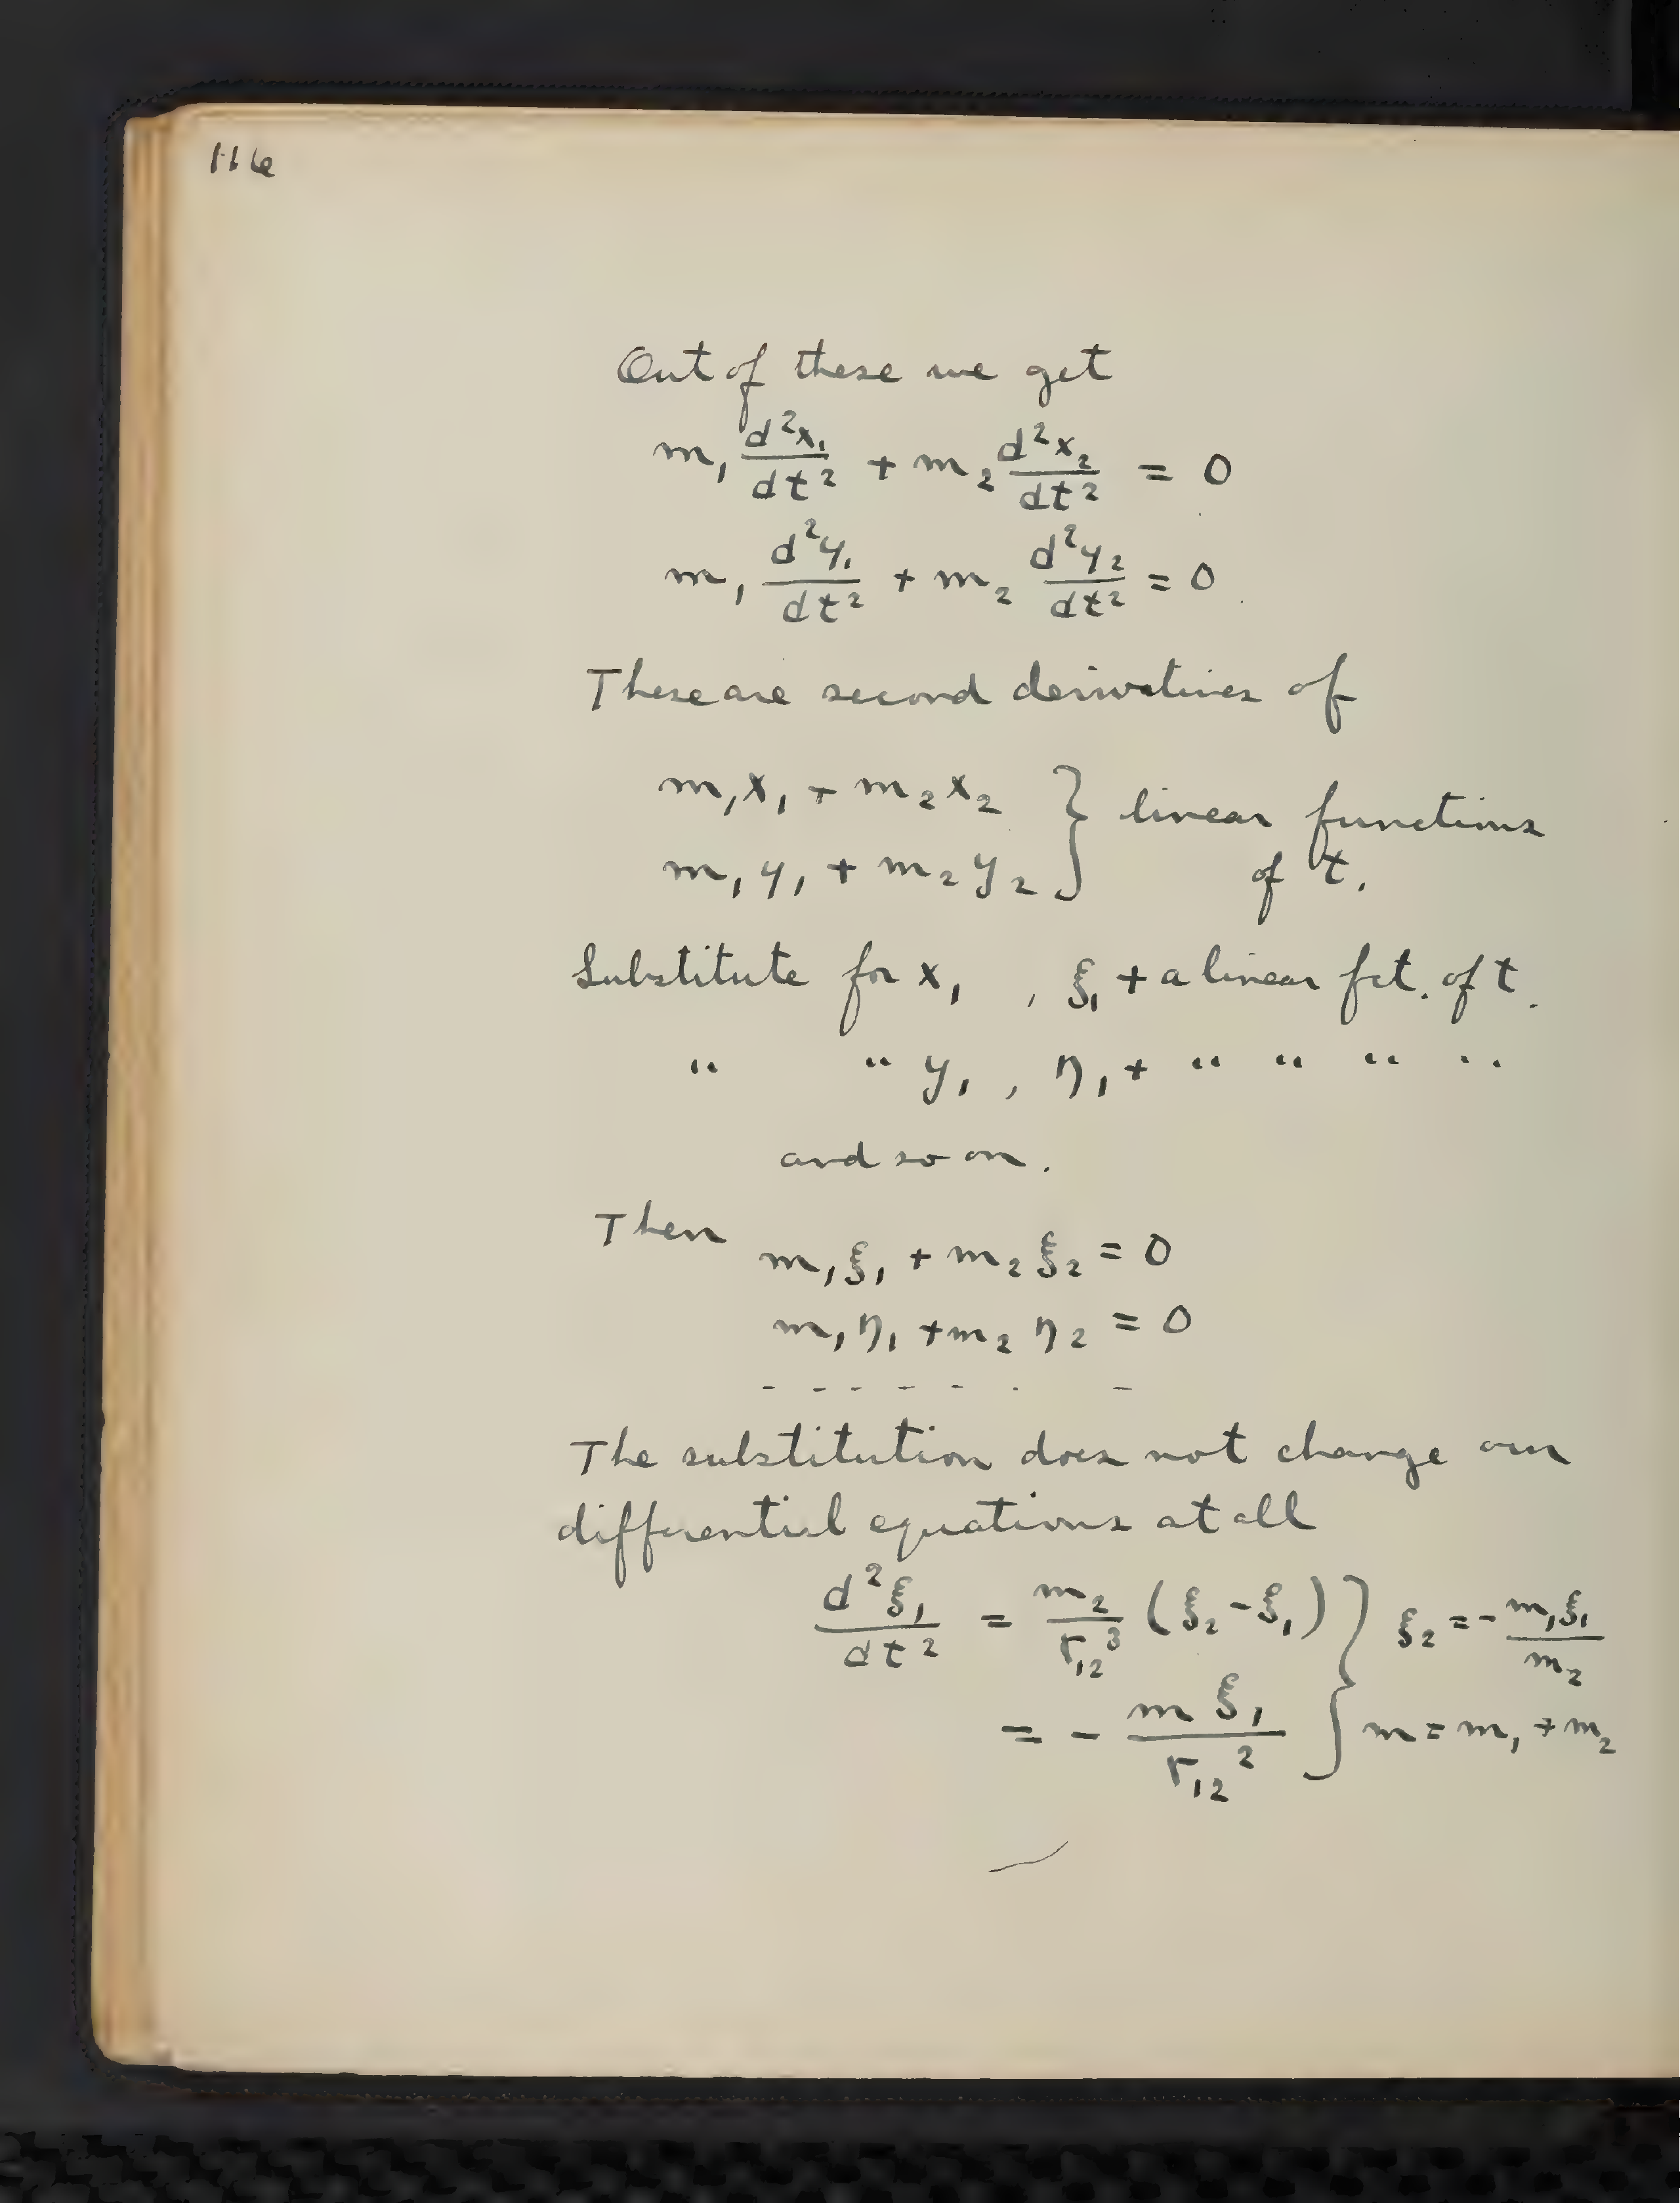 116
Out of these we get
m₁ d²x₁/dt² + m₂ d²x₂/dt² = 0
m₁ d²y₁/dt² + m₂ d²y₂/dt² = 0
These are second derivatives of
m₁x₁ + m₂x₂ } linear functions
m₁y₁ + m₂y₂ } of t.
Substitute for x₁ , ξ₁ + a linear fct. of t.
" " y₁ , η₁ + " " " "
and so on.
Then m₁ξ₁ + m₂ξ₂ = 0
m₁η₁ + m₂η₂ = 0
- - - - - . -
The substitution does not change our
differential equations at all
d²ξ₁/dt² = m₂/r₁₂³ (ξ₂ - ξ₁) } ξ₂ = - m₁ξ₁/m₂
= - mξ₁/r₁₂² } m = m₁ + m₂